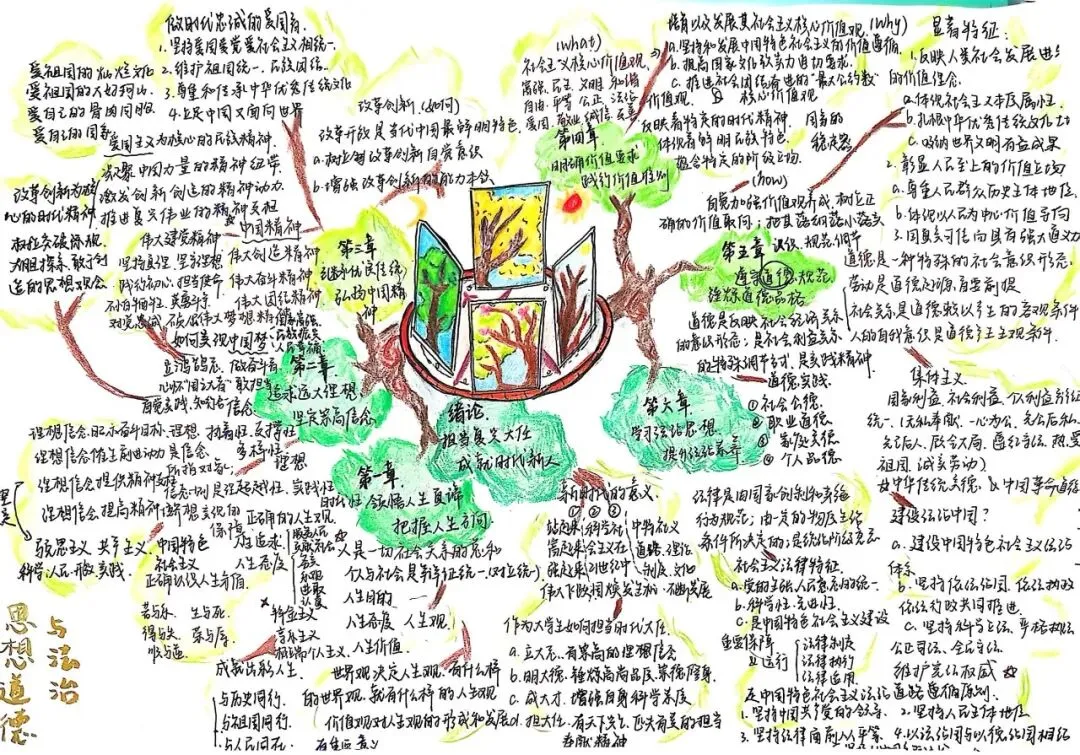 做时代忠诚的爱国者
1. 坚持爱国爱党爱社会主义相统一
2. 维护祖国统一、民族团结
3. 尊重和传承中华优秀传统文化
4. 立足中国又面向世界
爱祖国的灿烂文化
爱祖国的大好河山
爱自己的骨肉同胞
爱自己的国家
爱国主义为核心的民族精神
凝聚中国力量的精神纽带
激发创新创造的精神动力
推进复兴伟业的精神支柱
中国精神
改革创新为核
心的时代精神
树立突破陈规
大胆探索敢于创
造的思想观念
伟大建党精神
坚持真理、坚守理想
践行初心、担当使命
不怕牺牲、英勇斗争
对党忠诚、不负人民
伟大创造精神
伟大奋斗精神
伟大团结精神
伟大梦想精神
国家富强
民族振兴
人民幸福
如何实现中国梦
立鸿鹄志、做奋斗者
心怀“国之大者” 敢担当
自觉实践、知行合一
改革创新(如何)
改革开放是当代中国最鲜明特色
a. 树立创改革创新自觉意识
b. 增强改革创新的能力本领
第三章
继承优良传统
弘扬中国精
神
第二章
追求远大理想
坚定崇高信念
绪论
担当复兴大任
成就时代新人
第一章
领悟人生真谛
把握人生方向
第四章
明确价值要求
践行价值准则
第五章
遵守道德规范
锤炼道德品格
第六章
学习法治思想
提升法治素养
(what)
社会主义核心价值观
富强、民主、文明、和谐
自由、平等、公正、法治
爱国、敬业、诚信、友善
培育以及发展其社会主义核心价值观 (why)
a. 坚持和发展中国特色社会主义的价值遵循
b. 提高国家文化软实力迫切要求
c. 推进社会团结奋进的“最大公约数”
核心价值观
反映着特定的时代精神
体现着鲜明民族特色
蕴含特定的阶级立场
国家的
稳定器
(how)
显著特征:
1. 反映人类社会发展进步
的价值理念
a. 体现社会主义本质属性
b. 扎根中华优秀传统文化土
c. 吸纳世界文明有益成果
2. 彰显人民至上的价值立场
a. 尊重人民群众历史主体地位
b. 体现以人民为中心价值导向
3. 因真实可信而具有强大道义力
道德是一种特殊的社会意识形态
劳动是道德起源首要前提
社会关系是道德赖以产生的客观条件
人的自我意识是道德产生主观条件
认识、规范、调节
道德是反映社会经济关系
的意识形态;是社会利益关系
的特殊调节方式,是实践精神
道德实践
① 社会公德
② 职业道德
③ 家庭美德
④ 个人品德
集体主义
国家利益、社会利益、个人利益辩证
统一
祖国、诚实劳动)
中华传统美德
中国革命道德
建设法治中国?
a. 建设中国特色社会主义法治
体系
b. 坚持依法治国、依法执政
依法行政共同推进
c. 坚持科学立法、严格执法
公正司法、全民守法
维护宪法权威
法律是由国家创制和实施
行为规范;由一定的物质生活
条件所决定的;是统治阶级意志
社会主义法律特征
a. 党的主张人民意志的统一
b. 科学性先进性
c. 是中国特色社会主义建设
重要保障
运行
法律制定
法律执行
法律适用
走中国特色社会主义法治道路遵循原则
1. 坚持中国共产党的领导
2. 坚持人民主体地位
3. 坚持法律面前人人平等
4. 以法治国与以德治国相结
新时代的意义
① ② ③
站起来
富起来
强起来
伟大飞跃
科学社
会主义在
21世纪中
国焕发生机
中特社义
道路、理论
制度、文化
不断发展
作为大学生如何担当时代大任
a. 立大志、有崇高的理想信念
b. 明大德、锤炼高尚品质、崇德修身
c. 成大才、增强自身科学素质
d. 担大任、有天下兴亡、匹夫有责的担当
奉献精神
人是一切社会关系的总和
个人与社会是辩证统一(对立统一)
人生目的
人生态度
人生价值
人生观
世界观决定人生观,有什么样
的世界观,就有什么样的人生观
价值观对人生观的形成和发展
有重要意义
正确的人生观
人生追求
人生态度
服务人民
奉献社会
正确认识人生价值
苦与乐
生与死
得与失
荣与辱
顺与逆
拜金主义
享乐主义
极端个人主义
成就出彩人生
与历史同行
与祖国同行
与人民同在
理想信念昭示奋斗目标
理想信念催生前进动力
理想信念提供精神支柱
理想信念提高精神境界
马克思主义
科学、人民、开放、实践
共产主义
中国特色
社会主义
思想道德
与法治